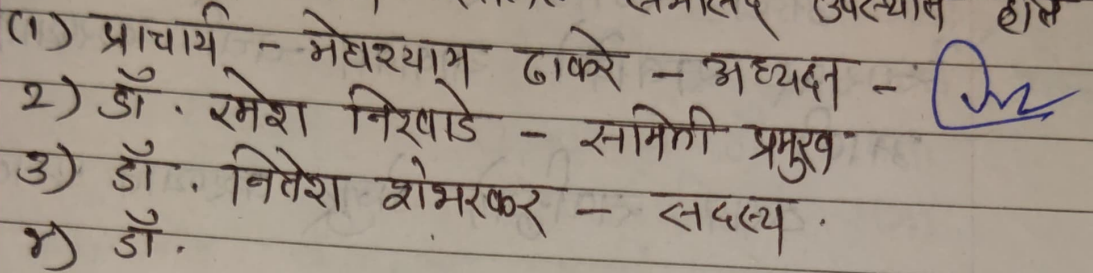 सभासद उपस्थित होते
(१) प्राचार्य - मेघश्याम ढाकरे - अध्यक्ष -
२) डॉ. रमेश निखाडे - समिती प्रमुख
३) डॉ. नितेश शेंभरकर - सदस्य.
४) डॉ.